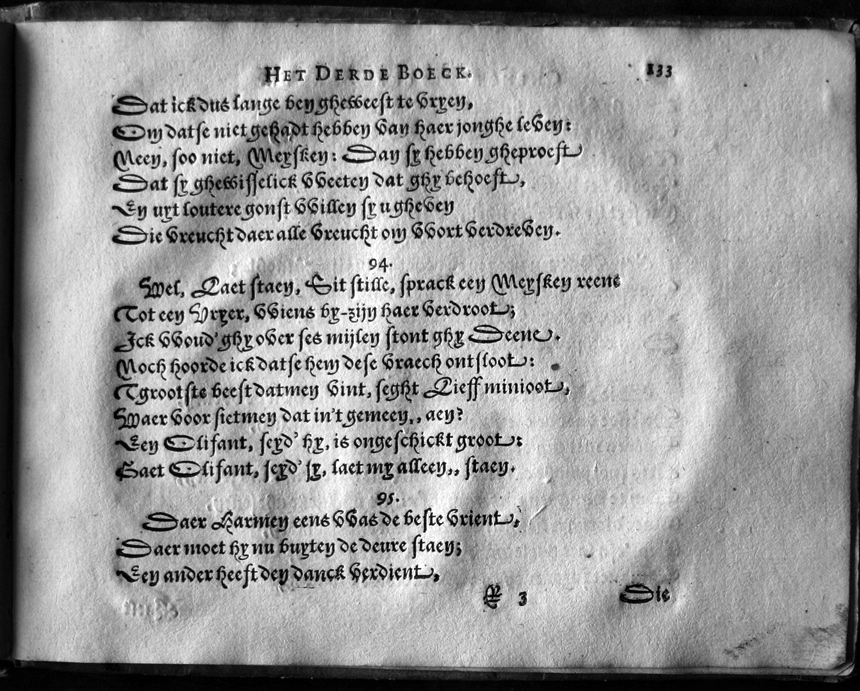 HET DERDE BOECK. 133
Dat ick dus lange ben gheweest te vryen,
Om datse niet gehadt hebben van haer jonghe leven:
Neen, soo niet, Meysken: Dan sy hebben gheproeft
Dat sy ghewisselick weeten dat ghy behoeft,
En uyt loutere gonst willen sy u gheven
Die vreucht daer alle vreucht om wort verdreven.
94.
Wel, Laet staen, Sit stille, sprack een Meysken reene
Tot een Vryer, wiens by-zijn haer verdroot;
Ick woud' ghy over ses mijlen stont ghy Deene.
Noch hoorde ick datse hem dese vraech ontsloot:
Tgrootste beest datmen vint, seght Lieff minioot,
Waer voor sietmen dat in't gemeen,, aen?
Een Olifant, seyd' hy, is ongeschickt groot:
Gaet Olifant, seyd' sy, laet my alleen,, staen.
95.
Daer Harmen eens was de beste vrient,
Daer moet hy nu buyten de deure staen;
Een ander heeft den danck verdient,
3 Die